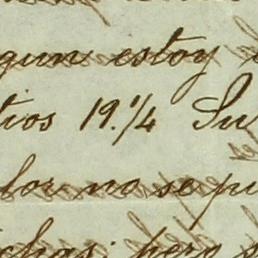 gun estoy
tios 19.1/4 Su
lor no se pu
chas: pero s